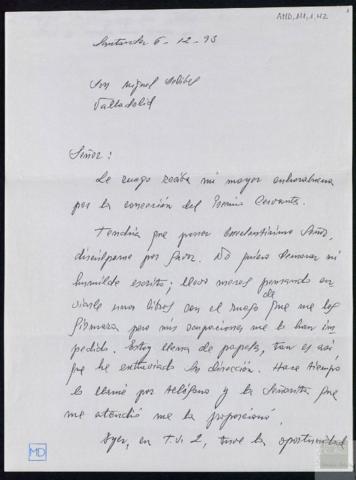 MD, 111, 1, 42
Santander 6-12-93
Don Miguel Delibes
Valladolid
Señor:
Le ruego reciba mi mayor enhorabuena
por la concesión del Premio Cervantes.
Tendría que poner Excelentísimo Señor,
discúlpeme por favor. No quiero demorar mi
humilde escrito; llevo meses pensando en
viarle unos libros con el ruego de que me los
firmara pero mis ocupaciones me lo han im
pedido. Estoy llena de papeles, tan es así
que he extraviado su dirección. Hace tiempo
le llamé por teléfono y la Señorita que
me atendió me la proporcionó.
Ayer, en T.V. 2, tuve la oportunidad
MD